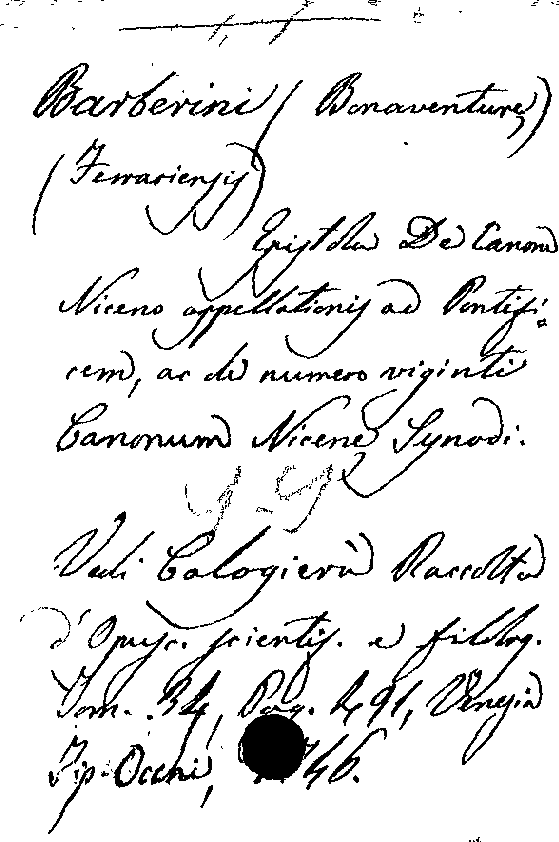 Barberini (Bonaventura)
(Ferrariensis)
Epistola De Canone
Niceno appellationis ad Pontifi=
cem, ac de numero viginti
Canonum Nicene Synodi.
Vedi Calogierà Raccolta
d'Opusc. scientif. e filolog.
Tom. 34, Pag. 491, Venezia
Tip. Occhi, 1746.